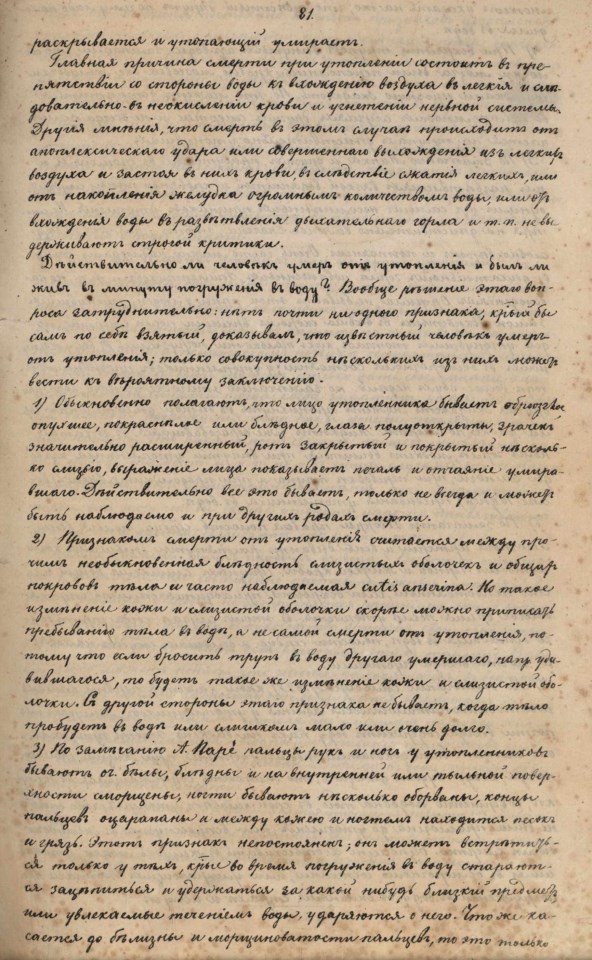 81.
раскрывается и утопающій умираетъ.
Главная причина смерти при утопленіи состоитъ въ пре-
пятствіи со стороны воды къ вхожденію воздуха въ легкія и слѣ-
довательно въ неокисленіи крови и угнетеніи нервной системы.
Другія мнѣнія, что смерть въ этомъ случаѣ происходитъ отъ
апоплексическаго удара или совершеннаго выхожденія изъ легкихъ
воздуха и застоя въ нихъ крови, въ слѣдствіе сжатія легкихъ, или
отъ накопленія желудка огромнымъ количествомъ воды, или отъ
вхожденія воды въ развѣтвленія дыхательнаго горла и т. п. не вы
держиваютъ строгой критики.
Дѣйствительно ли человѣкъ умеръ отъ утопленія и былъ ли
живъ въ минуту погруженія въ воду? Вообще рѣшеніе этаго воп-
роса затруднительно: нѣтъ почти ни одного признака, крый бы
самъ по себѣ взятый, доказывалъ, что извѣстный человѣкъ умеръ
отъ утопленія; только совокупность нѣсколькихъ изъ нихъ можетъ
вести къ вѣроятному заключенію.
1) Обыкновенно полагаютъ, что лицо утопленника бываетъ
опухшее, покраснѣлое или блѣдное, глаза полуоткрыты, зрачекъ
значительно расширенный, ротъ закрытый и покрытый нѣсколь-
ко слизью, выраженіе лица показываетъ печаль и отчаяніе умира-
вшаго. Дѣйствительно все это бываетъ, только не всегда и можетъ
быть наблюдаемо и при другихъ родахъ смерти.
2) Признакомъ смерти отъ утопленія считается между про-
чимъ необыкновенная блѣдность слизистыхъ оболочекъ и общир
покрововъ тѣла и часто наблюдаемая cutis anserina. Но такое
измѣненіе кожи и слизистой оболочки скорѣе можно приписать
пребыванію тѣла въ водѣ, а не самой смерти отъ утопленія, по-
тому что если бросить трупъ въ воду другаго умершаго, напр. уда-
вившагося, то будетъ такое же измѣненіе кожи и слизистой обо-
лочки. Съ другой стороны этаго признака не бываетъ, когда тѣло
пробудетъ въ водѣ или слишкомъ мало или очень долго.
3) По замѣчанію А. Паре́ пальцы рукъ и ногъ у утопленниковъ
бываютъ оч. бѣлы, блѣдны и на внутренней или тыльной повер-
хности сморщены, ногти бываютъ нѣсколько оборваны, концы
пальцевъ оцарапаны и между кожею и ногтемъ находится песокъ
и грязь. Этотъ признакъ непостояненъ; онъ можетъ встрѣтить-
ся только у тѣхъ, крые во время погруженія въ воду стараютъ-
ся зацѣпиться и удержаться за какой нибудь близкій предметъ
или увлекаемые теченіемъ воды, ударяются о него. Что же ка-
сается до бѣлизны и морщиноватости пальцевъ, то это только